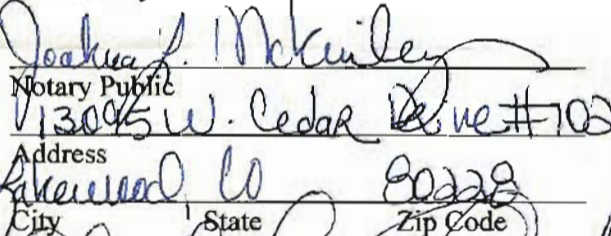 Joshua L. McKinley
Notary Public
13095 W. Cedar Drive #702
Address
Lakewood CO 80228
City State Zip Code